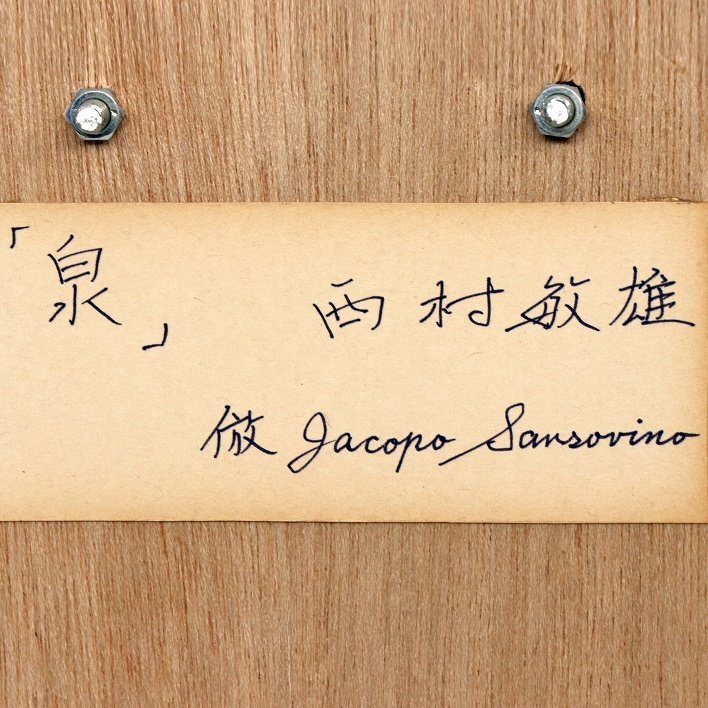 「泉」 西村敏雄
倣 Jacopo Sansovino